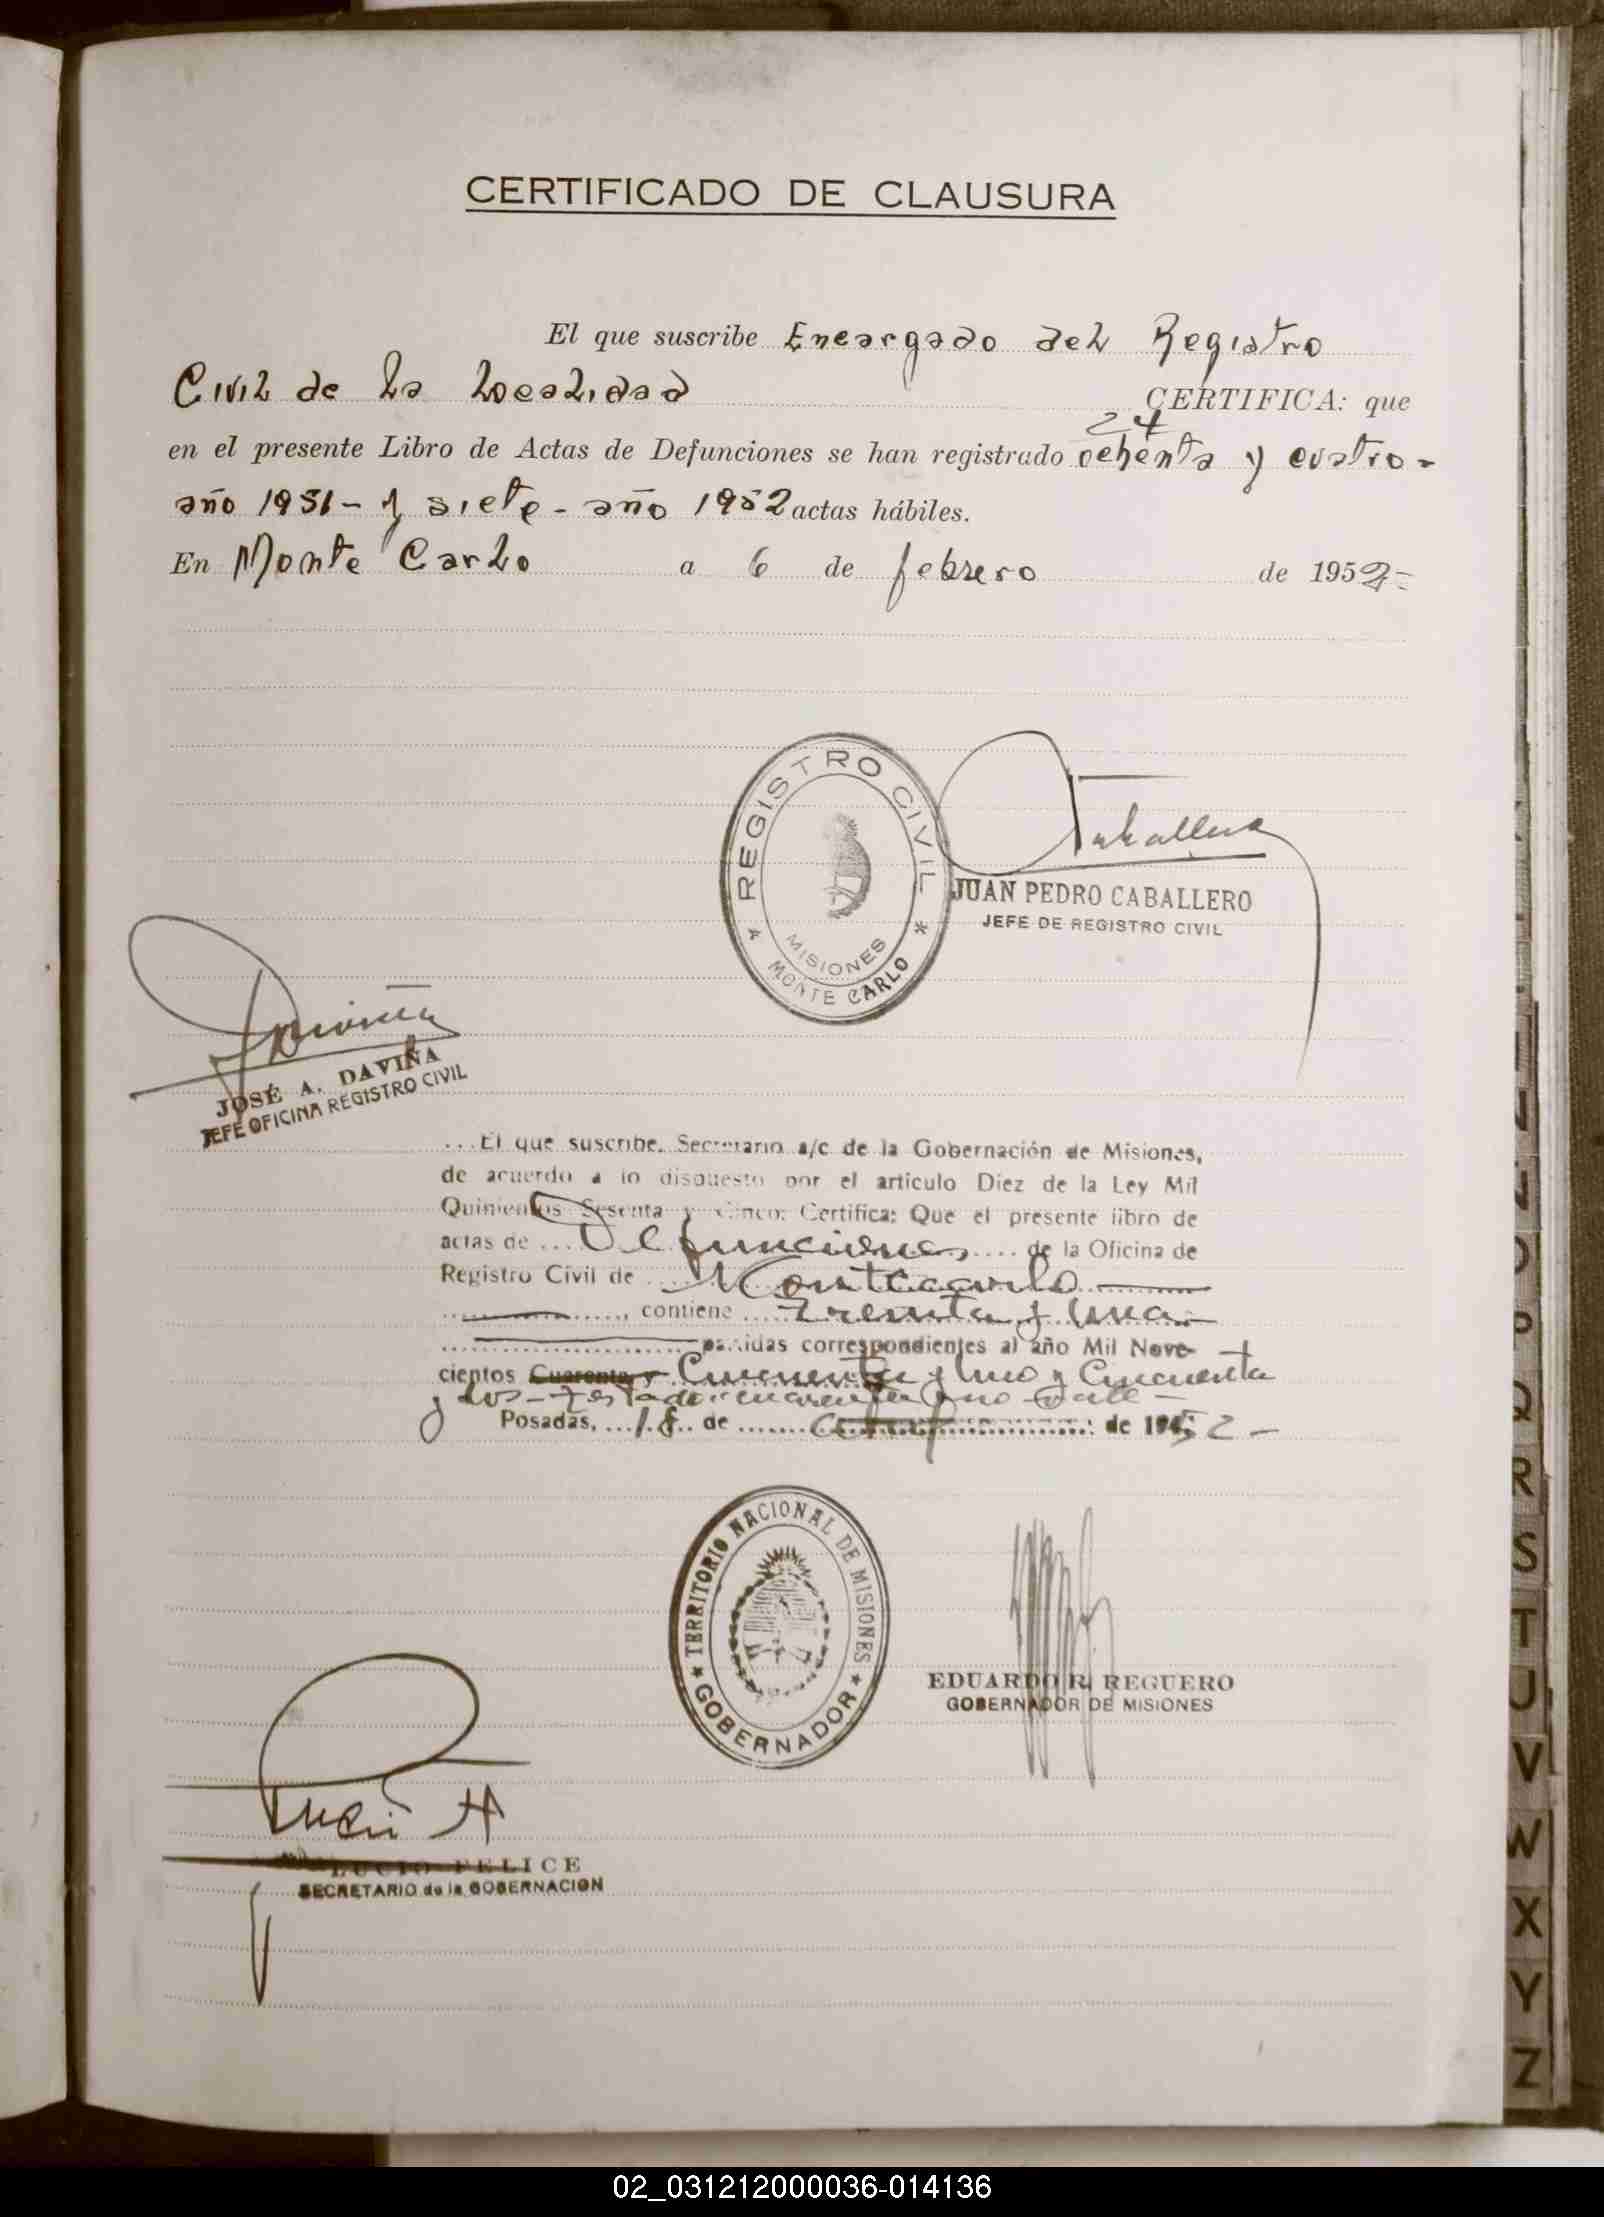 CERTIFICADO DE CLAUSURA
El que suscribe Encargado del Registro
Civil de la Localidad CERTIFICA: que
24
en el presente Libro de Actas de Defunciones se han registrado ochenta y cuatro-
año 1951- y siete- año 1952 actas hábiles.
En Monte Carlo a 6 de febrero de 1952-
REGISTRO CIVIL
MISIONES
MONTE CARLO
Caballero
JUAN PEDRO CABALLERO
JEFE DE REGISTRO CIVIL
Daviña
JOSÉ A. DAVIÑA
JEFE OFICINA REGISTRO CIVIL
...El que suscribe, Secretario a/c de la Gobernación de Misiones,
de acuerdo a lo dispuesto por el artículo Diez de la Ley Mil
Quinientos Sesenta y Cinco: Certifica: Que el presente libro de
actas de ... Defunciones .... de la Oficina de
Registro Civil de .... Montecarlo
......, contiene .... Treinta y una
partidas correspondientes al año Mil Nove-
cientos Cuarenta y Cincuenta y Uno y Cincuenta
y dos- Testado: cuarenta y no vale-
Posadas, ...18.. de ....... de 1952-
TERRITORIO NACIONAL DE MISIONES
GOBERNADOR
EDUARDO R. REGUERO
GOBERNADOR DE MISIONES
Lucio
LUCIO FELICE
SECRETARIO de la GOBERNACION
O
P
Q
R
S
T
U
V
W
X
Y
Z
02_031212000036-014136